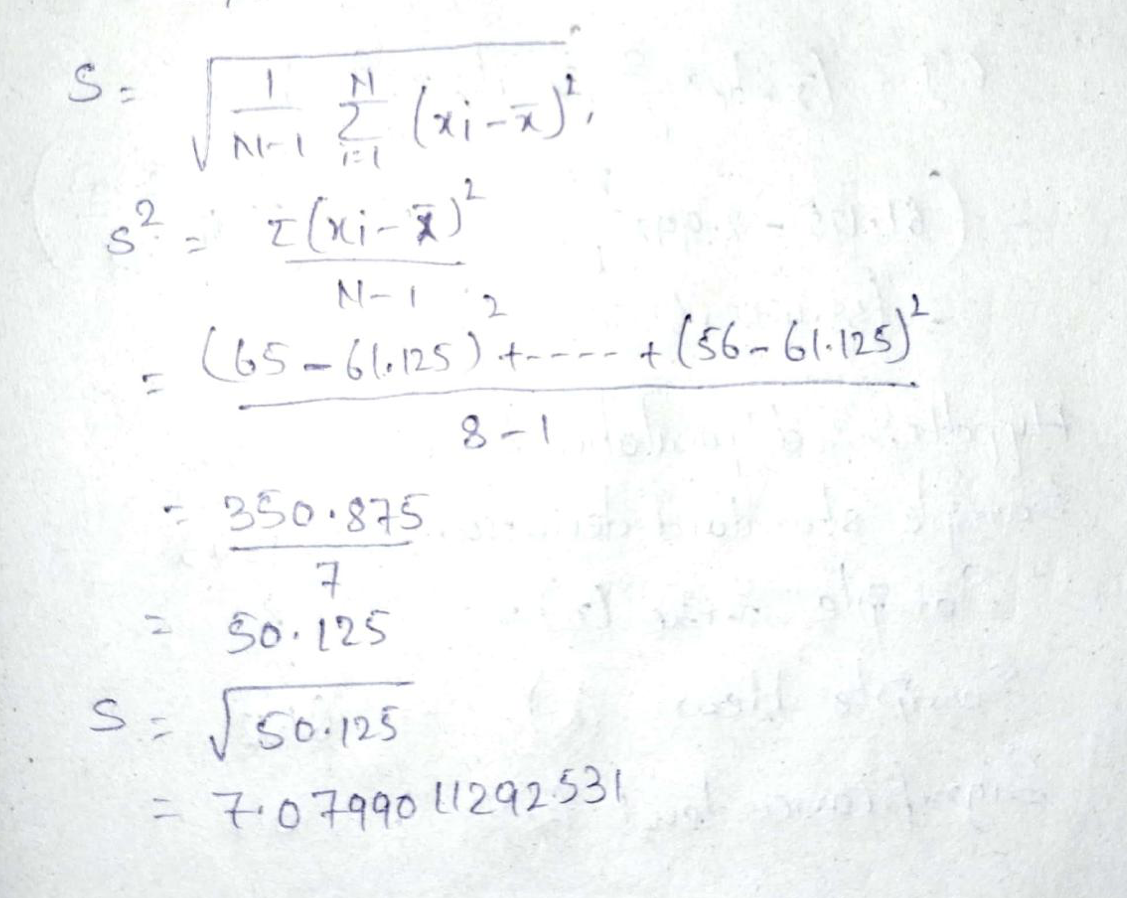 S = √(1/(N-1) N Σ i=1 (xi - x̄)²,
s² = Σ(xi - x̄)² / N-1
= (65 - 61.125)² + ---- + (56 - 61.125)² / 8-1
= 350.875 / 7
= 50.125
S = √50.125
= 7.079901129253​1